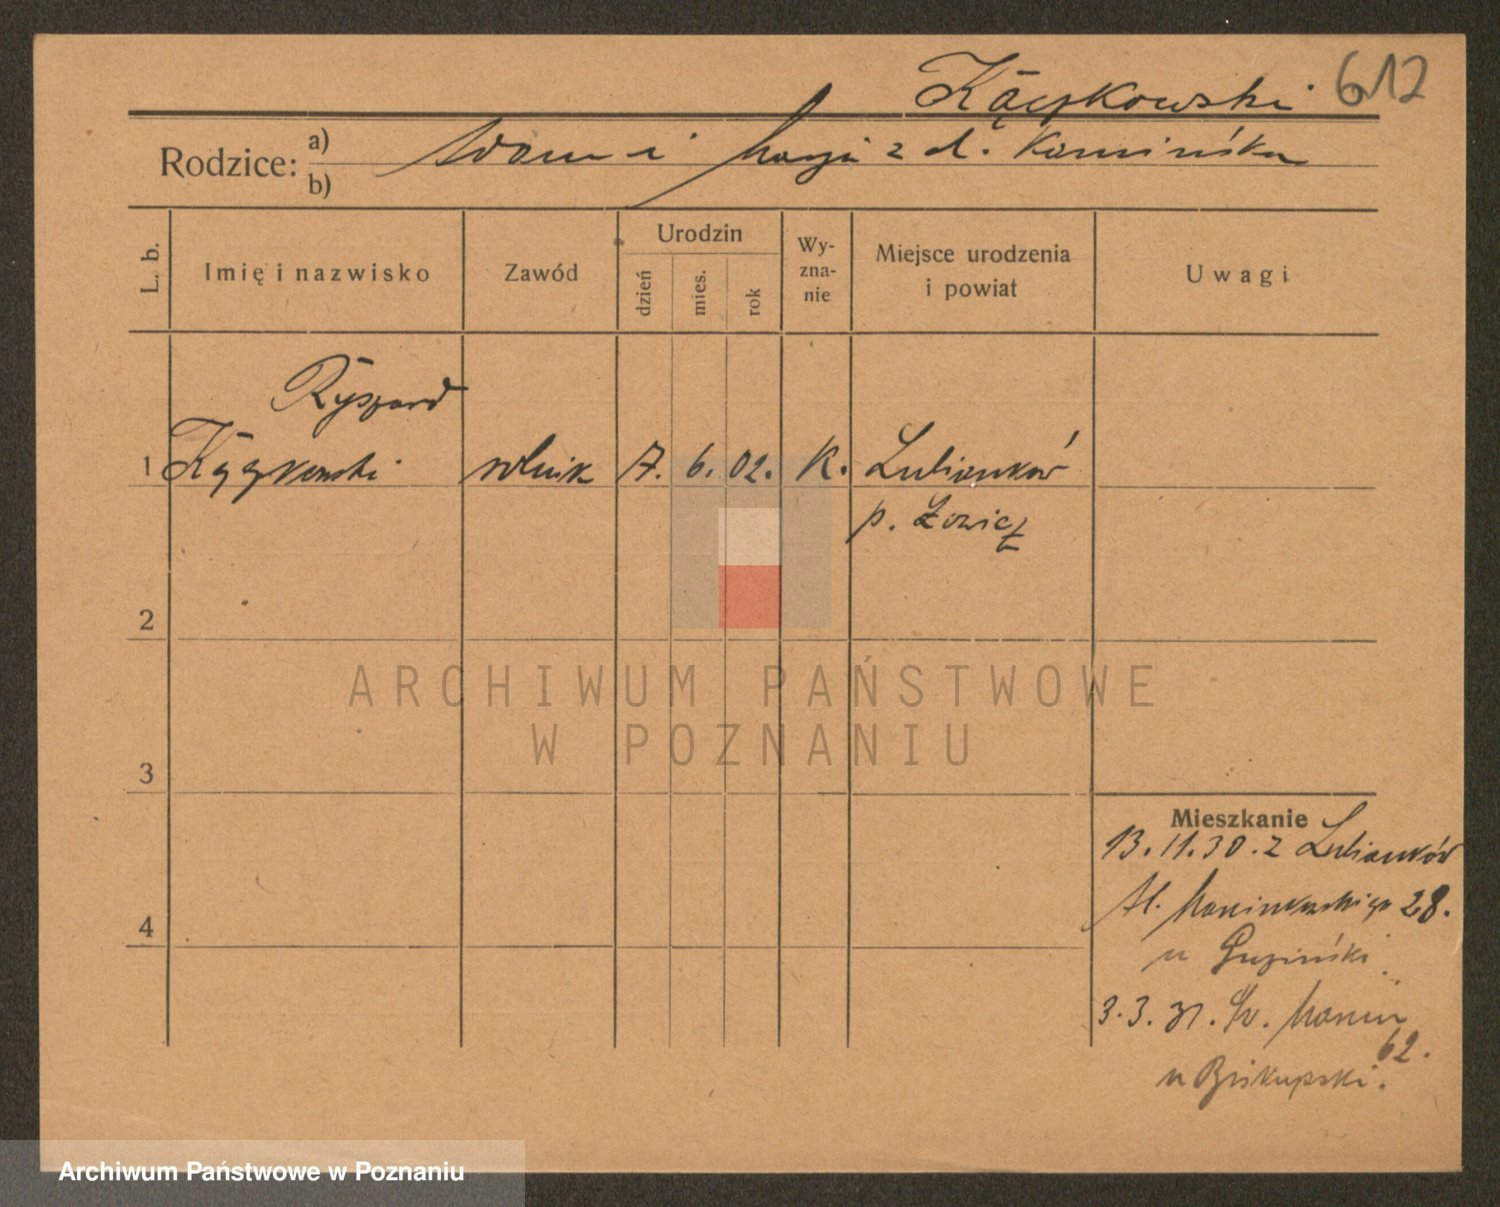 Kączkowski 612
Rodzice: a) Adam i Marja z d. Kamińska
b)
L. b. Imię i nazwisko Zawód Urodzin dzień mies. rok Wy-zna-nie Miejsce urodzenia i powiat Uwagi
Ryszard
1 Kączkowski rolnik 7. 6. 02. K. Lubianków
p. Łowicz
2
ARCHIWUM PAŃSTWOWE
W POZNANIU
3
Mieszkanie
13.11.30. z Lubianków
Al. Marcinkowskiego 28.
4
u
3.3.31. Św. Marcin
62.
u Biskupski.
Archiwum Państwowe w Poznaniu